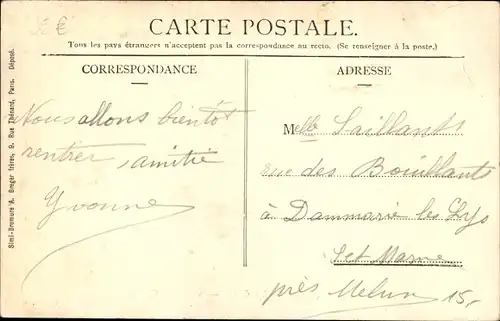 CARTE POSTALE.
Tous les pays étrangers n'acceptent pas la correspondance au recto. (Se renseigner à la poste.)
CORRESPONDANCE
Nous allons bientôt
rentrer, amitié
Yvonne
ADRESSE
Melle Saillant
rue des Bouillants
à Dammarie les Lys
Set Marne
près Melun 15,-
Simi-Bromure A. Breger frères, 9, Rue Thénard, Paris. Déposé.